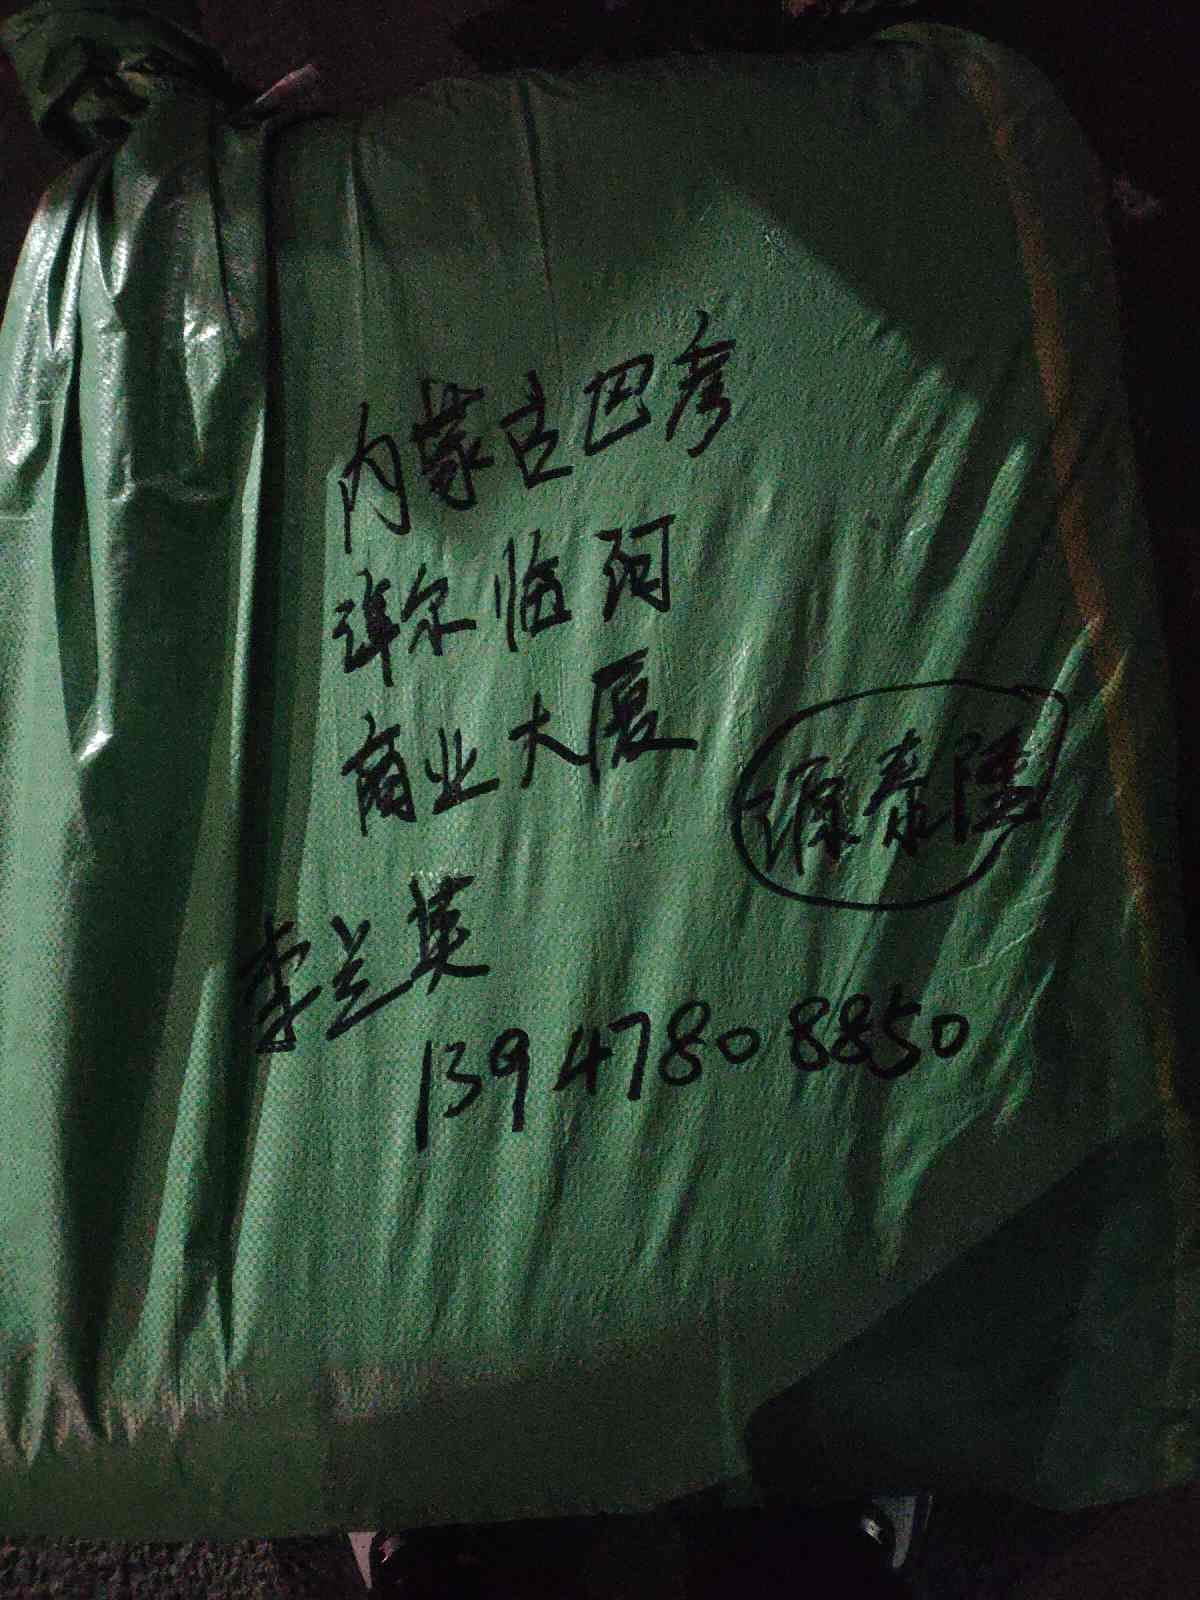 内蒙古巴彦
淖尔临河
商业大厦
源泰隆
李兰英
13947808850